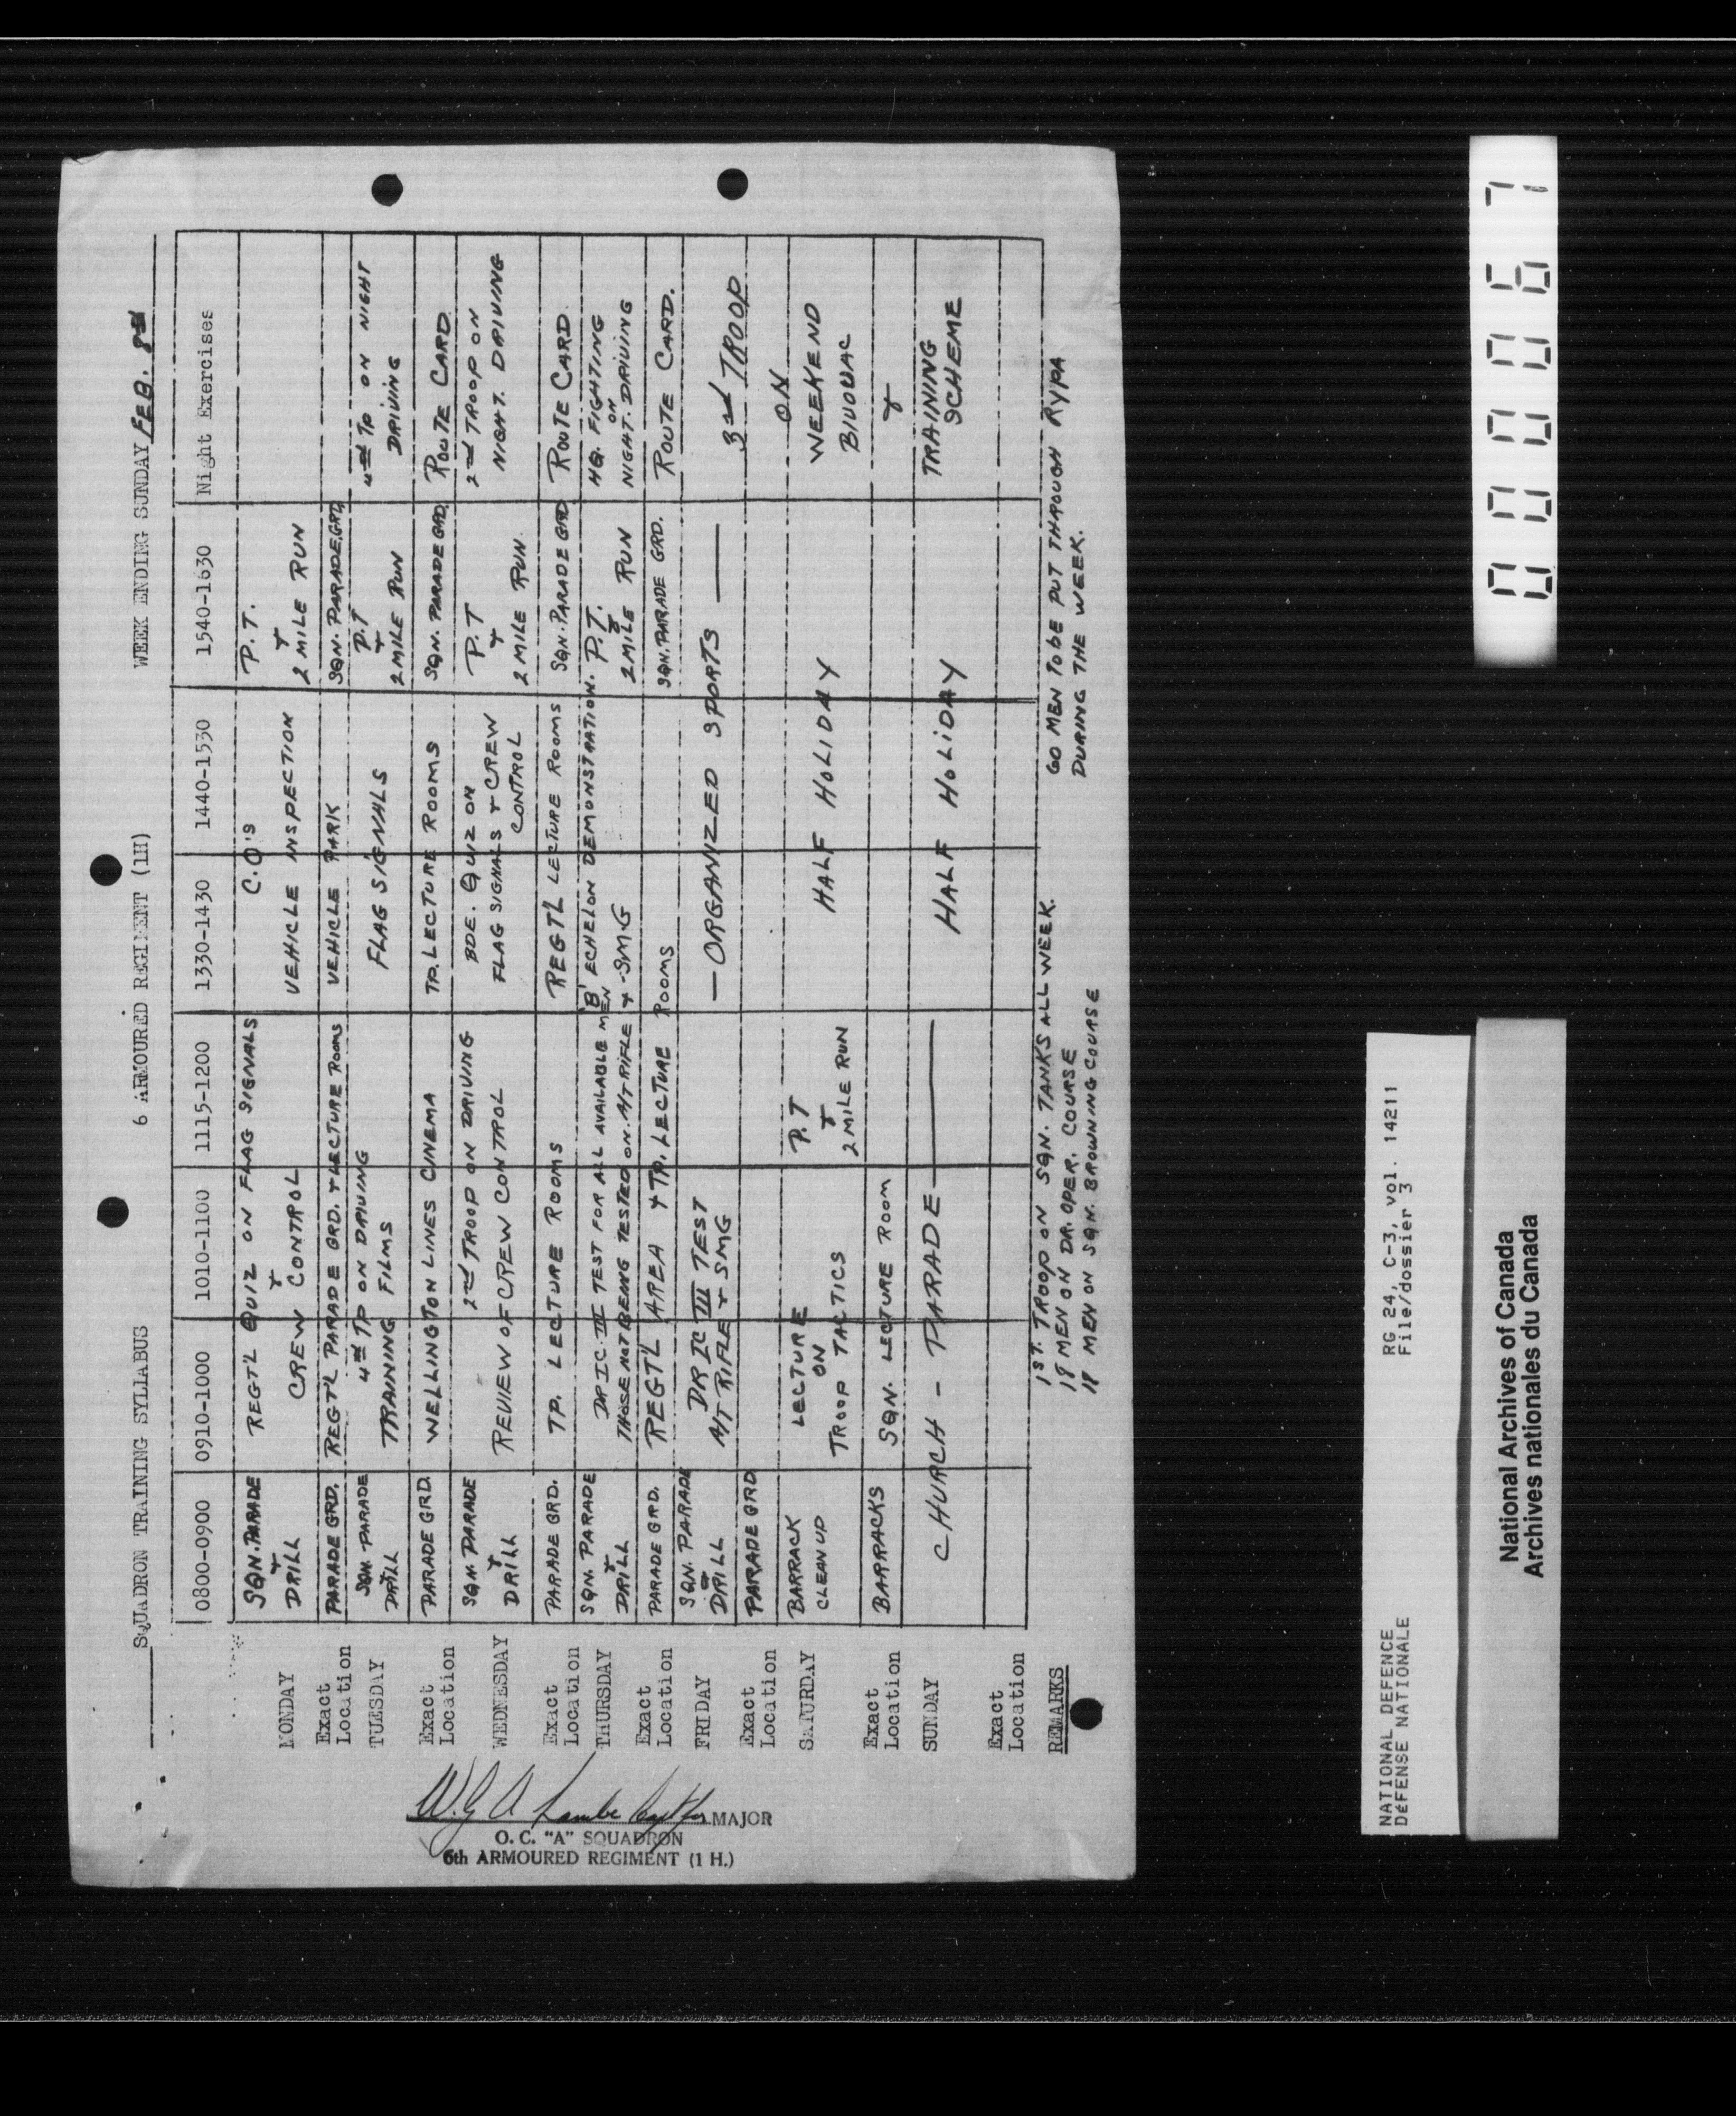 SQUADRON TRAINING SYLLABUS 6 ARMOURED REGIMENT (1H) WEEK ENDING SUNDAY FEB. 8th
0800-0900 0910-1000 1010-1100 1115-1200 1330-1430 1440-1530 1540-1630 Night Exercises
MONDAY
SQN. PARADE
&
DRILL
REGT'L QUIZ ON FLAG SIGNALS
&
CREW CONTROL
C.O'S
VEHICLE INSPECTION
P.T.
&
2 MILE RUN
Exact
Location
PARADE GRD.
REGT'L PARADE GRD. & LECTURE ROOMS
VEHICLE PARK
SQN. PARADE GRD.
TUESDAY
SQN. PARADE
&
DRILL
4th TP ON DRIVING
TRAINING FILMS
FLAG SIGNALS
P.T
&
2 MILE RUN
4th TP ON NIGHT
DRIVING
Exact
Location
PARADE GRD.
WELLINGTON LINES CINEMA
TP. LECTURE ROOMS
SQN. PARADE GRD.
ROUTE CARD
WEDNESDAY
SQN. PARADE
&
DRILL
2nd TROOP ON DRIVING
REVIEW OF CREW CONTROL
BDE. QUIZ ON
FLAG SIGNALS & CREW
CONTROL
P.T
&
2 MILE RUN.
2nd TROOP ON
NIGHT. DRIVING
Exact
Location
PARADE GRD.
TP. LECTURE ROOMS
REGT'L LECTURE ROOMS
SQN. PARADE GRD
ROUTE CARD
THURSDAY
SQN. PARADE
&
DRILL
DR IC III TEST FOR ALL AVAILABLE MEN
THOSE NOT BEING TESTED ON. A/T RIFLE & SMG
'B' ECHELON DEMONSTRATION.
P.T.
&
2 MILE RUN
HQ. FIGHTING
ON
NIGHT. DRIVING
Exact
Location
PARADE GRD.
REGT'L AREA & TP. LECTURE ROOMS
SQN. PARADE GRD.
ROUTE CARD.
FRIDAY
SQN. PARADE
&
DRILL
DR IC III TEST
A/T RIFLE & SMG
— ORGANIZED SPORTS —
3rd TROOP
Exact
Location
PARADE GRD
ON
SATURDAY
BARRACK
CLEAN UP
LECTURE
ON
TROOP TACTICS
P.T
&
2 MILE RUN
HALF HOLIDAY
WEEKEND
BIVOUAC
Exact
Location
BARRACKS
SQN. LECTURE ROOM
&
SUNDAY
CHURCH - PARADE
HALF HOLIDAY
TRAINING
SCHEME
Exact
Location
REMARKS
1ST. TROOP ON SQN. TANKS ALL WEEK.
18 MEN ON DR. OPER. COURSE
18 MEN ON SQN. BROWNING COURSE
60 MEN TO BE PUT THROUGH RYPA
DURING THE WEEK.
W.G.A. Lambe Capt for MAJOR
O. C. "A" SQUADRON
6th ARMOURED REGIMENT (1 H.)
NATIONAL DEFENCE
DÉFENSE NATIONALE
RG 24, C-3, vol. 14211
File/dossier 3
National Archives of Canada
Archives nationales du Canada
000067